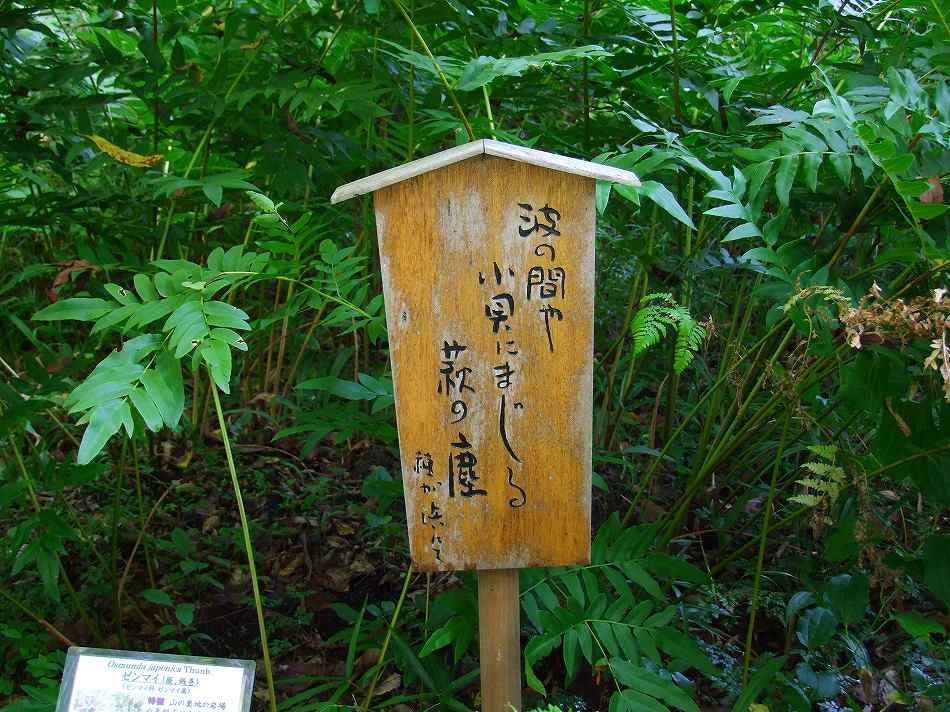 波の間や
小貝にまじる
萩の塵
種が浜にて
Osmunda japonica Thunb.
ゼンマイ
(ゼンマイ科 ゼンマイ属)
特徴 山の裏地の岩場